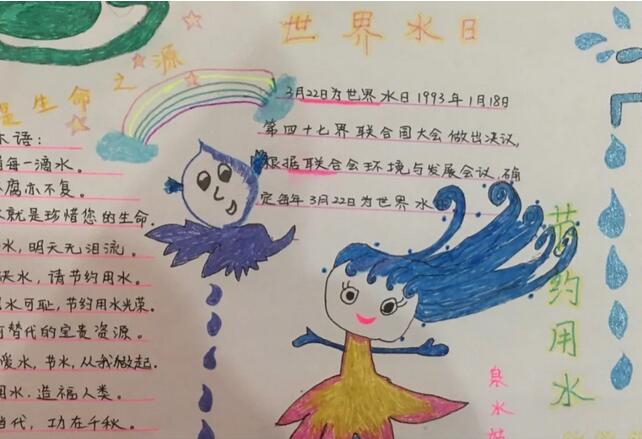 世界水日
是生命之源
3月22日为世界水日1993年1月18日
第四十七界联合国大会做出决议,
根据联合会环境与发展会议,确
定每年3月22日为世界水
语:
每一滴水。
腐亦不复。
水就是珍惜您的生命.
水,明天无泪流。
水,请节约用水。
水可耻,节约用水光荣。
替代的宝贵资源。
爱水,节水,从我做起.
用水.造福人类。
当代,功在千秋。
节约用水
泉水